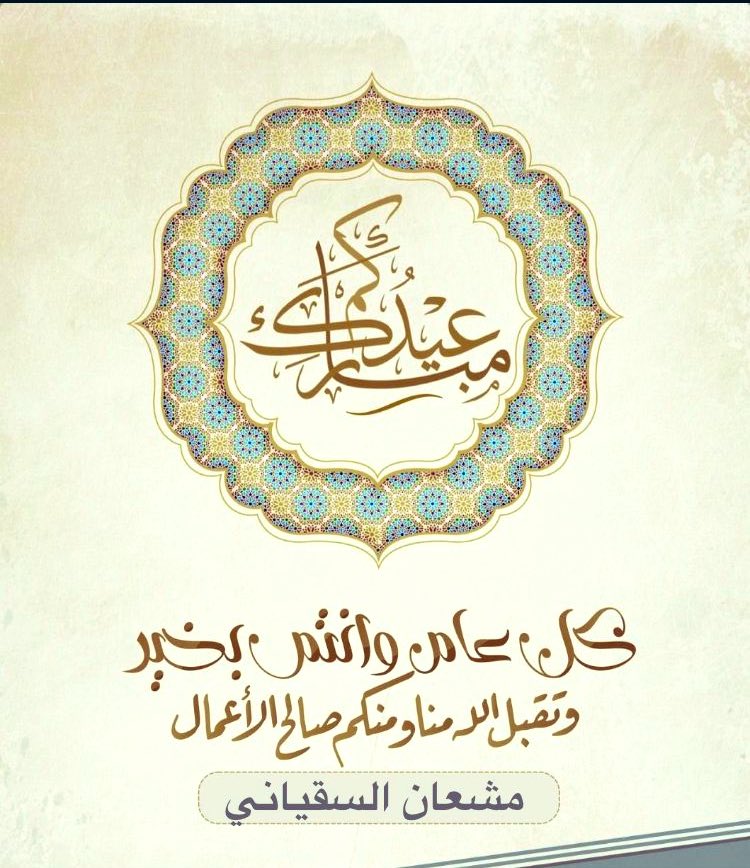 عيدكم
مبارك
كل عام وانتم بخير
وتقبل الله منا ومنكم صالح الأعمال
مشعان السقياني